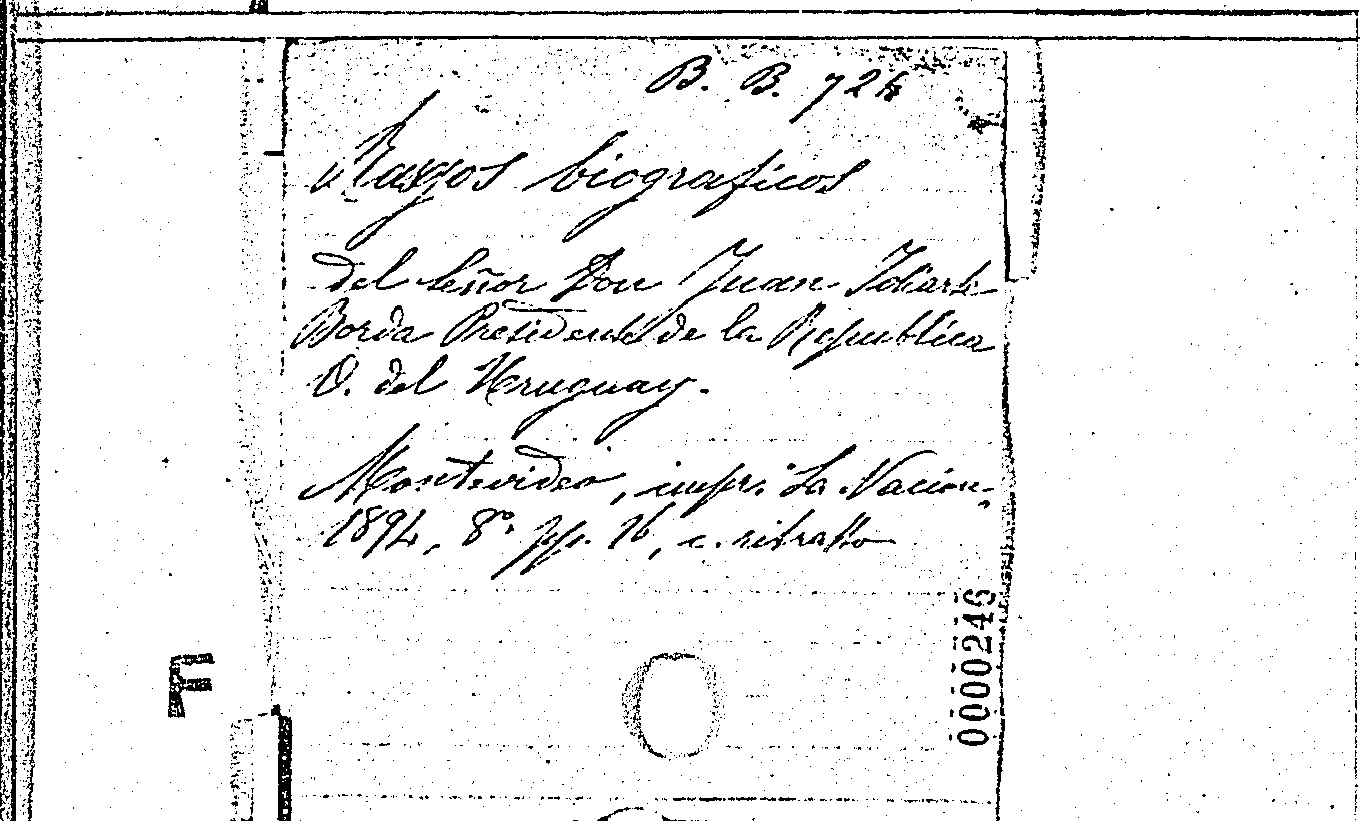 B. B. 724
Rasgos biograficos
del Señor Don Juan Idiarte
Borda Presidente de la Republica
O. del Uruguay.
Montevideo, impr. "La Nacion"
1894, 8º pp. 16, c. ritratto
0000246
F